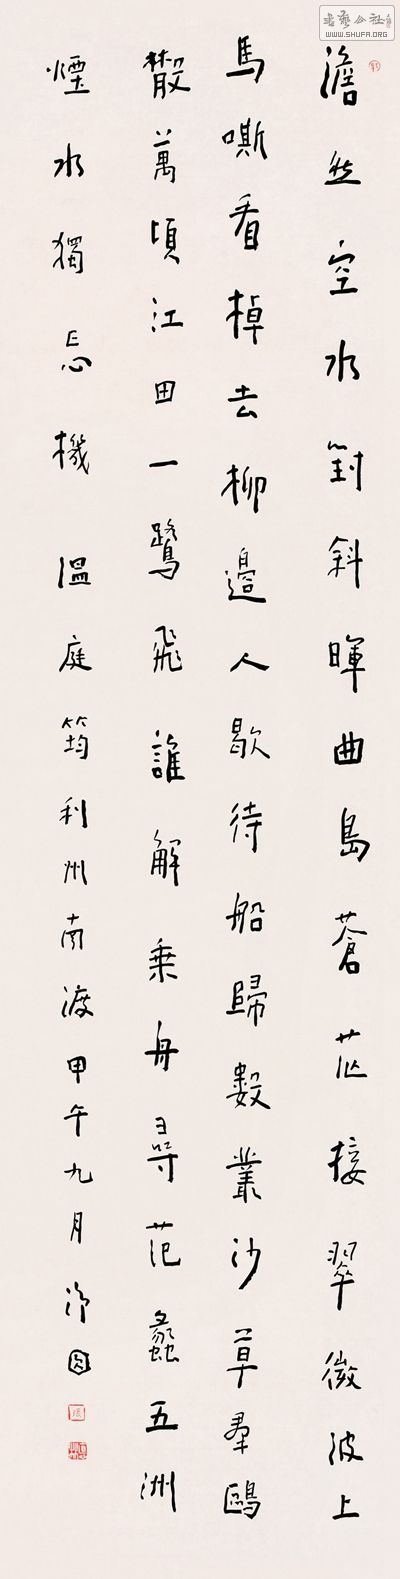 書藝公社
WWW.SHUFA.ORG
澹然空水對斜暉曲島蒼茫接翠微波上
馬嘶看棹去柳邊人歇待船歸數叢沙草羣鷗
散萬頃江田一鷺飛誰解乘舟尋范蠡五洲
煙水獨忘機 溫庭筠利州南渡甲午九月